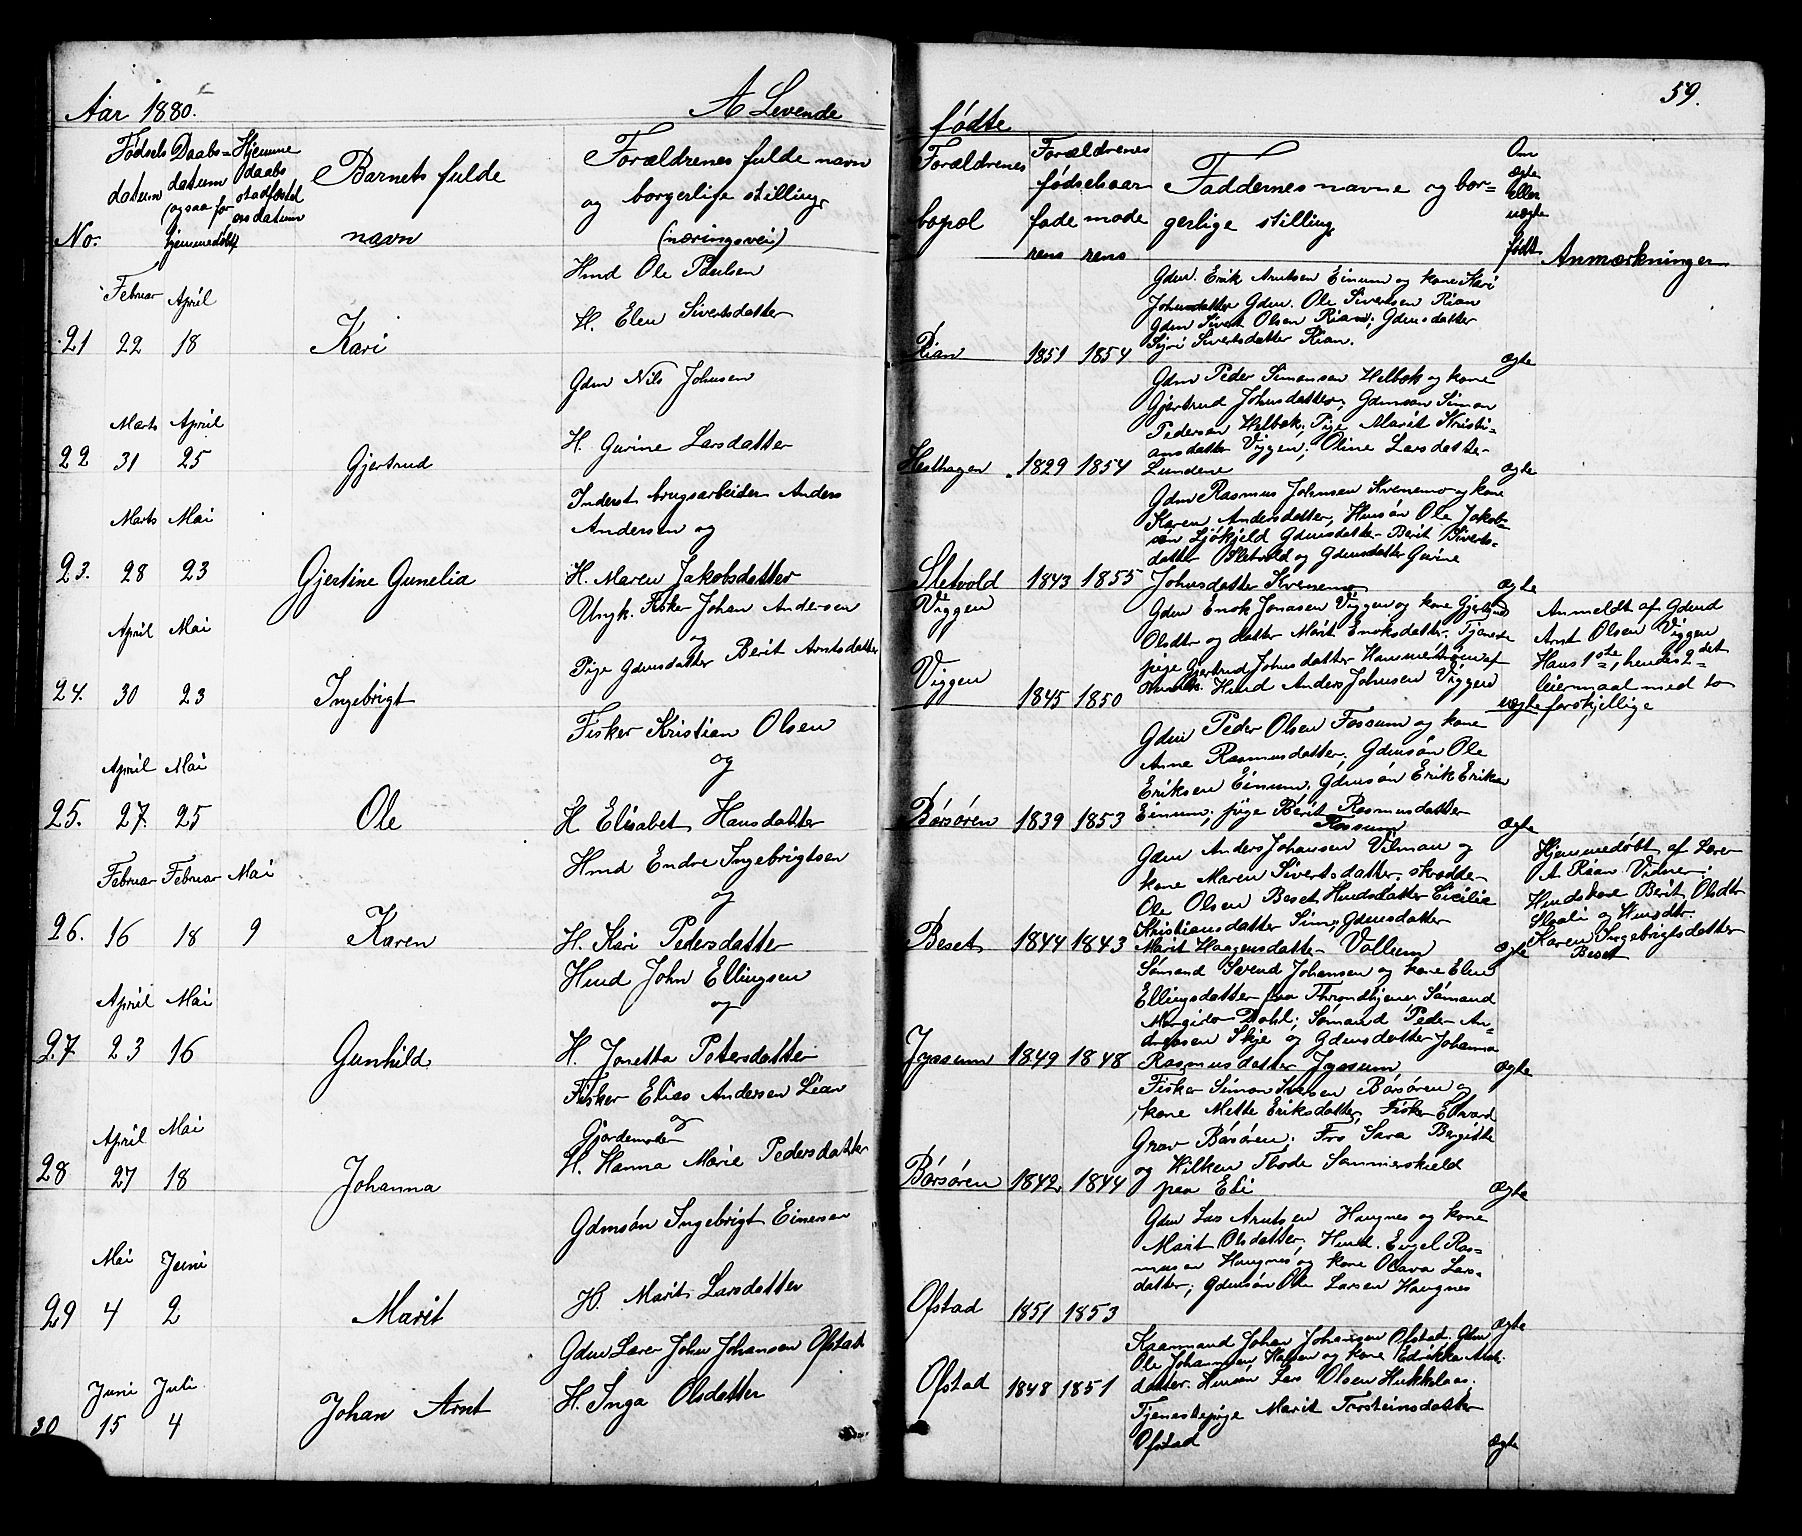 Aar 1880.
A Levende
fødte
59.
No.
Fødsels
datum
Daabs-
datum
(ogsaa for
hjemmedøbt)
Hjemme
daabs
stadfæstel
ses datum
Barnets fulde
navn
Forældrenes fulde navn
og borgerlige stilling
(næringsvei)
Forældrenes
bopæl
Forældrenes
fødselsaar
fade mode
rens rens
Faddernes navne og bor-
gerlige stilling
Om
ægte
eller
uægte
født
Anmærkninger
21
Februar
22
April
18
Kari
Hmd Ole Paulsen
H. Elen Sivertsdatter
Rian
1851 1854
Gdm. Erik Arntsen Einum og kone Kari
Johnsdatter Gdm. Ole Sivertsen Rian
Gdm Sivert Olsen Rian; Gdmsdatter
Siri Sivertsdatter Rian.
ægte
22
Marts
31
April
25
Gjertrud
Gdm Nils Johnsen
H. Gurine Larsdatter
Hesthagen
1829 1854
Gdm Peder Simonsen Helbæk og kone
Gjertrud Johnsdatter; Gdmsøn Simon
Pedersen Helbæk; Pige Marit Kristi-
ansdatter Viggen; Oline Larsdatter
Lundene
ægte
23.
Marts
28
Mai
23
Gjertine Gunelia
Inderst brugsarbeider Anders
Andersen og
H. Maren Jakobsdatter
Sletvold
1843 1855
Gdm Rasmus Johnsen Kvenemo og kone
Karen Andersdatter, Husøn Ole Jakob-
sen Sjøkjeld Gdmsdatter Berit Siverts-
datter Sletvold og Gdmsdatter Gurine
Johnsdatter Kvenemo
ægte
24.
April
30
Mai
23
Ingebrigt
Ungk. Fisker Johan Andersen
og
Pige Gdmsdatter Berit Arntsdatter
Viggen
Viggen
1845 1850
Gdm Enok Jonasen Viggen og kone Gjertrud
Olsdtr og datter Marit Enoksdatter. Tjeneste
pige Gjertrud Johnsdatter
Hmd Anders Johnsen Viggen
uægte
Anmeldt af Gdmd
Arnt Olsen Viggen
Hans 1ste, hendes 2det
leiermaal med to
forskjellige
25.
April
27.
Mai
25
Ole
Fisker Kristian Olsen
og
H Elisabet Hansdatter
Børsøren
1839 1853
Gdm Peder Olsen Fossum og kone
Anne Rasmusdatter; Gdmsøn Ole
Eriksen Einum. Gdmsøn Erik Eriksen
Einum; pige Berit Rasmusdatter
Fossum
ægte
26.
Februar
16
Februar
18
Mai
9
Karen
Hmd Endre Ingebrigtsen
og
H. Kari Pedersdatter
Beset
1844 1843
Gdm Anders Johansen Vilman og
kone Maren Sivertsdatter. skrædder
Ole Olsen Beset Hmdsdatter Cicilie
Kristiansdatter Gdmsdatter
Marit Haagensdatter Vollum
ægte
Hjemmedøbt af Lærer
A Rian Vidner:
Hmdskone Berit Olsdtr
og Hmsdtr.
Karen Ingebrigtsdatter
Beset
27
April
23
Mai
16
Gunhild
Hmd John Ellingsen
og
H. Jonetta Petersdatter
Jyssum
1849 1848
Sømand Svend Johansen og kone Elen
Ellingsdatter fra Throndhjem Sømand
Dahl; Sømand Peder An-
dreasen Skje og Gdmsdatter Johanna
Rasmusdatter Jyssum
ægte
28
April
27
Mai
18
Johanna
Fisker Elias Andersen Lian
og
Gjordemoder
H. Hanna Marie Pedersdatter
Børsøren
1842 1844
Fisker Simon Iversen Børsøren og
kone Mette Eriksdatter, Fisker Edvard
Grav Børsøren. Frø Sara Bergitte
og Hilken Thode Sommerskield
paa Eli
Ægte
29
Mai
4
Juni
2
Marit
Gdmsøn Ingebrigt Einersen
H. Marit Larsdatter
Ofstad
1851 1853
Gdm Lars Arntsen Haugnes og kone
Marit Olsdatter; Hmd. Engel Ras-
musen Haugnes og kone Olava Lars-
datter; Gdmsøn Ole Larsen Haugnes
Ægte
30
Juni
15
Juli
4
Johan Arnt
Gdm Lærer John Johansen Ofstad
H. Inga Olsdatter
Ofstad
1848 1851
Kaarmand Johan Johansen Ofstad. Gdm
Ole Johannsen Halsen og kone Edrikke Arnt-
datter. Husøn Lars Olsen Hukkelaas.
Tjenestepige Marit Torsteinsdatter
Ofstad
Ægte